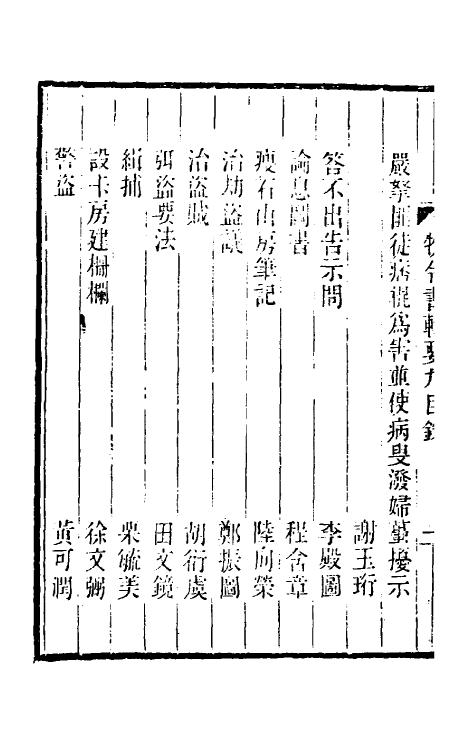 牧令書輯要九目錄 二
嚴拏匪徒痞棍爲害並使病叟潑婦蠆擾示
謝玉珩
答不出告示問 李殿圖
諭息鬭書 程含章
瘦石山房筆記 陸向榮
治劫盜議 鄭振圖
治盜賊 胡衍虞
弭盜要法 田文鏡
緝捕 栗毓美
設卡房建柵欄 徐文弼
警盜 黃可潤